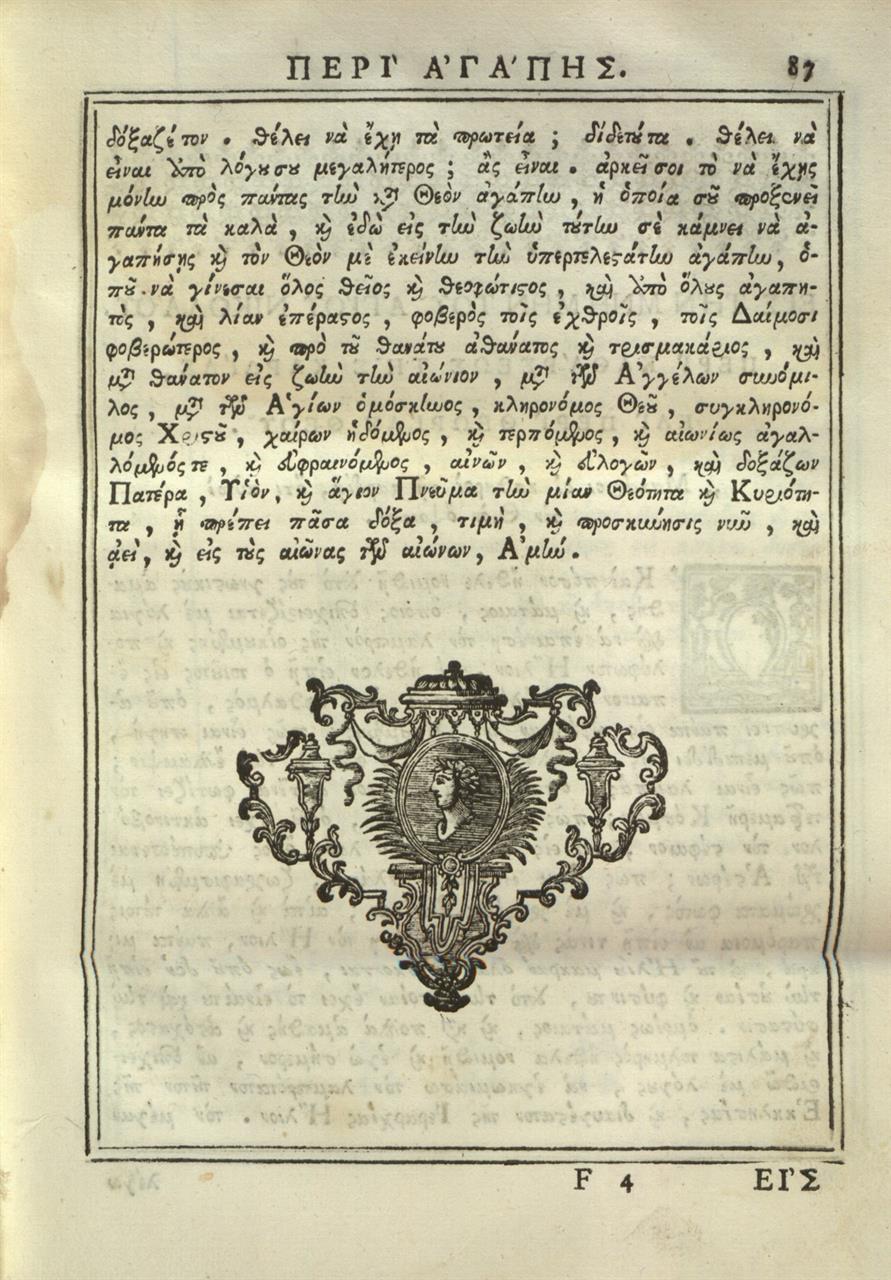 ΠΕΡΙ' Α'ΓΑ'ΠΗΣ. 87
δόξαζέτον . θέλει νὰ ἔχῃ τὰ πρωτεία ; δίδετούτα . θέλει νὰ
εἶναι ὑπὸ λόγουσου μεγαλήτερος ; ἂς εἶναι . ἀρκεῖσοι τὸ νὰ ἔχῃς
μόνἰω πρὸς πάντας τἰω μετὰ Θεὸν ἀγάπἰω , ἡ ὁποία σοῦ προξενεῖ
πάντα τὰ καλὰ , καὶ ἐδὼ εἰς τἰω ζωἰω τούτἰω σὲ κάμνει νὰ ἀ-
γαπήσῃς καὶ τὸν Θεὸν μὲ ἐκείνἰω τἰω ὑπερτελεστάτἰω ἀγάπἰω, ὁ-
ποῦ νὰ γίνεσαι ὅλος θεῖος καὶ θεοφώτιστος , καὶ ὑπὸ ὅλους ἀγαπη-
τὸς , καὶ λίαν ἐπέραστος , φοβερὸς τοῖς ἐχθροῖς , τοῖς Δαίμοσι
φοβερώτερος , καὶ πρὸ τοῦ θανάτου ἀθάνατος καὶ τρισμακάριος , καὶ
μετὰ θάνατον εἰς ζωἰω τἰω αἰώνιον , μετὰ τῶν Α'γγέλων συνόμι-
λος , μετὰ τῶν Α'γίων ὁμόσκἰωος , κληρονόμος Θεοῦ , συγκληρονό-
μος Χριστοῦ , χαίρων ἡδόμενος , καὶ τερπόμενος , καὶ αἰωνίως ἀγαλ-
λόμενόςτε , καὶ εὐφραινόμενος , αἰνῶν , καὶ εὐλογῶν , καὶ δοξάζων
Πατέρα , Υἱὸν, καὶ ἅγιον Πνεῦμα τἰω μίαν Θεότητα καὶ Κυριότη-
τα , ᾗ πρέπει πᾶσα δόξα , τιμὴ , καὶ προσκύνησις νυῦ , καὶ
ἀεὶ, καὶ εἰς τοὺς αἰῶνας τῶν αἰώνων, Α'μἰω .
F 4 ΕΙ'Σ